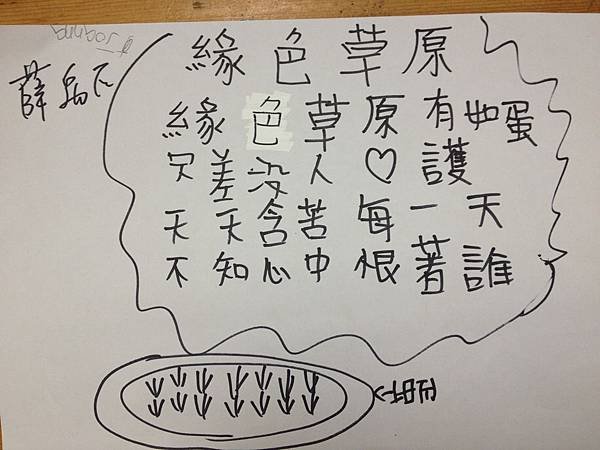 緣色草原
緣色草原有如蛋
欠差沒人♡護
天天含苦每一天
不知心中恨著誰